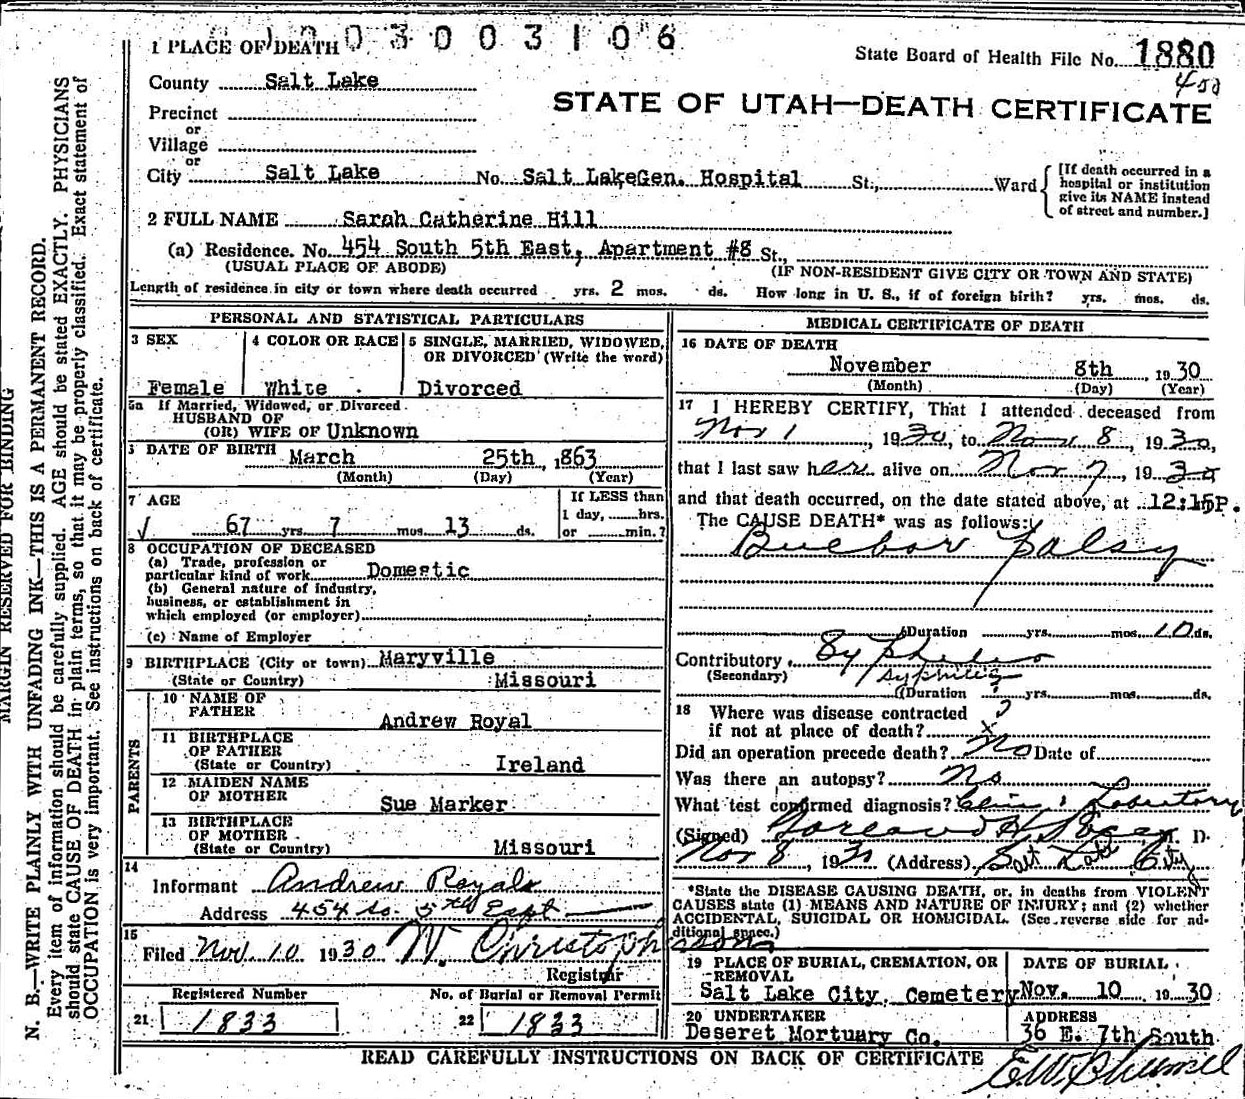 003003106
1 PLACE OF DEATH
State Board of Health File No. 1880
County Salt Lake
400
STATE OF UTAH—DEATH CERTIFICATE
Precinct
or
Village
or
City Salt Lake No. Salt Lake Gen. Hospital St., Ward
[If death occurred in a
hospital or institution
give its NAME instead
of street and number.]
2 FULL NAME Sarah Catherine Hill
(a) Residence. No. 454 South 5th East, Apartment #8 St.,
(USUAL PLACE OF ABODE) (IF NON-RESIDENT GIVE CITY OR TOWN AND STATE)
Length of residence in city or town where death occurred yrs. 2 mos. ds. How long in U. S., if of foreign birth? yrs. mos. ds.
PERSONAL AND STATISTICAL PARTICULARS
3 SEX
Female
4 COLOR OR RACE
White
5 SINGLE, MARRIED, WIDOWED,
OR DIVORCED (Write the word)
Divorced
5a If Married, Widowed, or Divorced
HUSBAND OF
(OR) WIFE OF Unknown
DATE OF BIRTH March 25th, 1863
(Month) (Day) (Year)
7 AGE
√ 67 yrs. 7 mos. 13 ds.
If LESS than
1 day, hrs.
or min.?
8 OCCUPATION OF DECEASED
(a) Trade, profession or
particular kind of work Domestic
(b) General nature of industry,
business, or establishment in
which employed (or employer)
(c) Name of Employer
9 BIRTHPLACE (City or town) Maryville
(State or Country) Missouri
PARENTS
10 NAME OF
FATHER Andrew Royal
11 BIRTHPLACE
OF FATHER
(State or Country) Ireland
12 MAIDEN NAME
OF MOTHER Sue Marker
13 BIRTHPLACE
OF MOTHER
(State or Country) Missouri
14
Informant Andrew Royals
Address 454 So. 5th East
15
Filed Nov 10 1930 W. Christopherson
Registrar
Registered Number
21 1833
No. of Burial or Removal Permit
22 1833
MEDICAL CERTIFICATE OF DEATH
16 DATE OF DEATH
November 8th, 1930
(Month) (Day) (Year)
17 I HEREBY CERTIFY, That I attended deceased from
Nov 1, 1930, to Nov 8, 1930,
that I last saw her alive on Nov 7, 1930
and that death occurred, on the date stated above, at 12:15P.
The CAUSE DEATH* was as follows:
Bulbar Palsy
(Duration yrs. mos. 10 ds.
Contributory Syphilis
(Secondary) syphilis
(Duration yrs. mos. ds.
18 Where was disease contracted
if not at place of death? x ?
Did an operation precede death? No Date of
Was there an autopsy? No
What test confirmed diagnosis? Clin. & Laboratory
(Signed) M. D.
Nov 8, 1930 (Address) Salt Lake City
*State the DISEASE CAUSING DEATH, or, in deaths from VIOLENT
CAUSES state (1) MEANS AND NATURE OF INJURY; and (2) whether
ACCIDENTAL, SUICIDAL OR HOMICIDAL. (See reverse side for ad-
ditional space.)
19 PLACE OF BURIAL, CREMATION, OR
REMOVAL
Salt Lake City, Cemetery
DATE OF BURIAL
Nov. 10 1930
20 UNDERTAKER
Deseret Mortuary Co.
ADDRESS
36 E. 7th South
READ CAREFULLY INSTRUCTIONS ON BACK OF CERTIFICATE
MARGIN RESERVED FOR BINDING
N. B.—WRITE PLAINLY WITH UNFADING INK—THIS IS A PERMANENT RECORD.
Every item of information should be carefully supplied. AGE should be stated EXACTLY. PHYSICIANS
should state CAUSE OF DEATH in plain terms, so that it may be properly classified. Exact statement of
OCCUPATION is very important. See instructions on back of certificate.